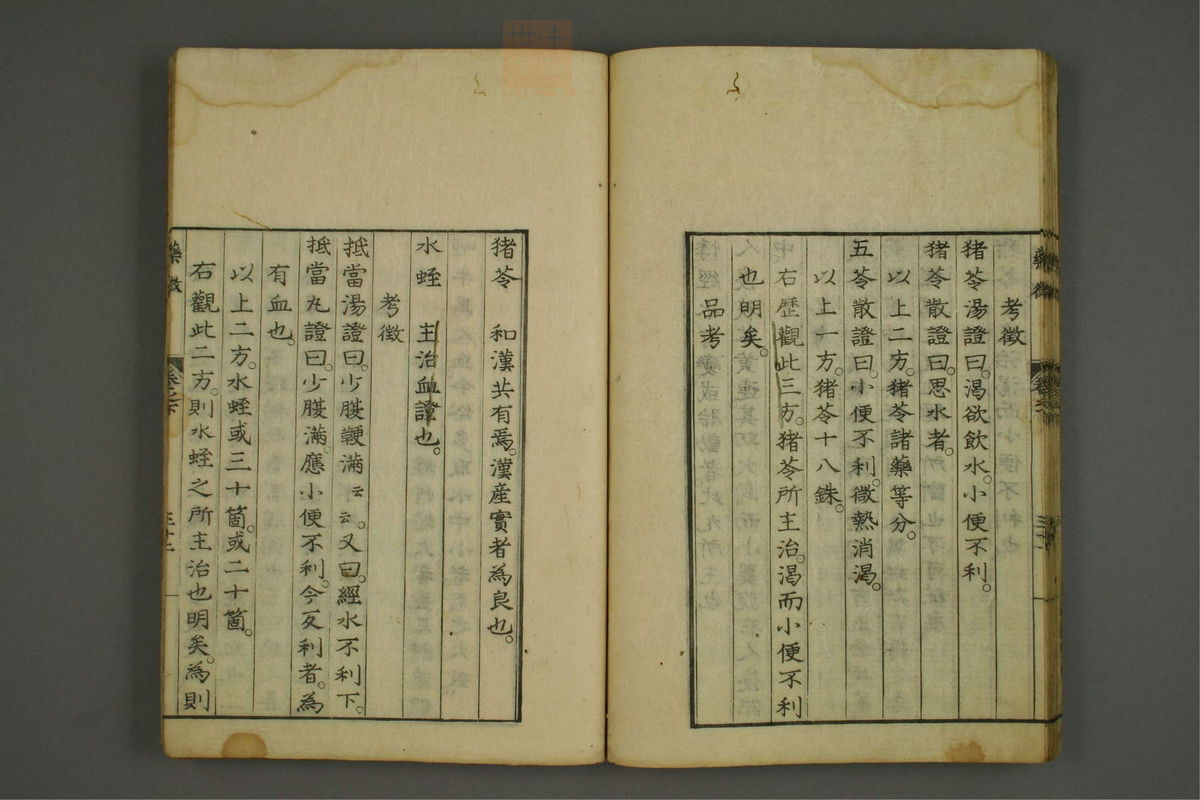 考徵
猪苓湯證曰。渴欲飲水。小便不利。
猪苓散證曰。思水者。
以上二方。猪苓諸藥等分。
五苓散證曰。小便不利。微熱消渴。
以上一方。猪苓十八銖。
右歷觀此三方。猪苓所主治。渴而小便不利
也明矣。
品考
猪苓　和漢共有焉。漢產實者為良也。
水蛭　主治血證也。
考徵
抵當湯證曰。少腹鞕滿云云。又曰。經水不利下。
抵當丸證曰。少腹滿。應小便不利。今反利者。為
有血也。
以上二方。水蛭或三十箇。或二十箇。
右觀此二方。則水蛭之所主治也明矣。為則
藥徵